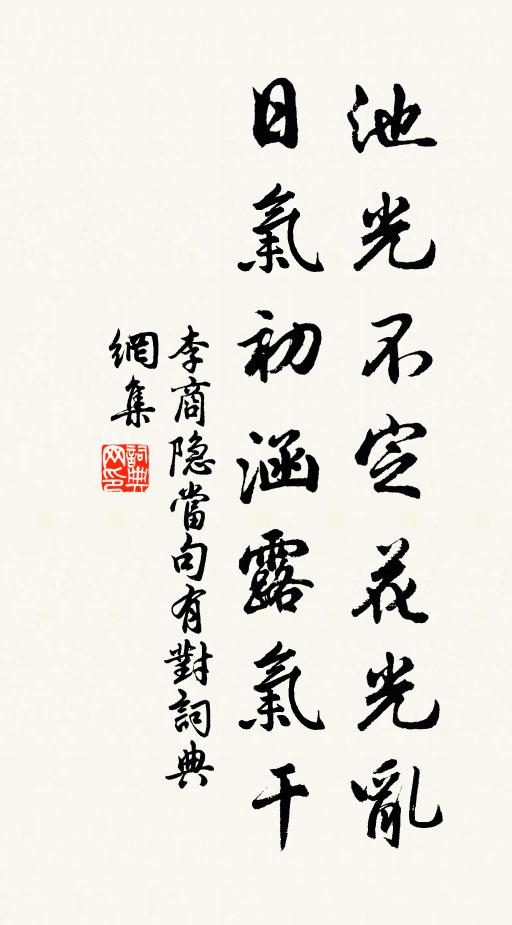 池光不定花光亂
日氣初涵露氣干
李商隐當句有對詞典
網集
詞典網印